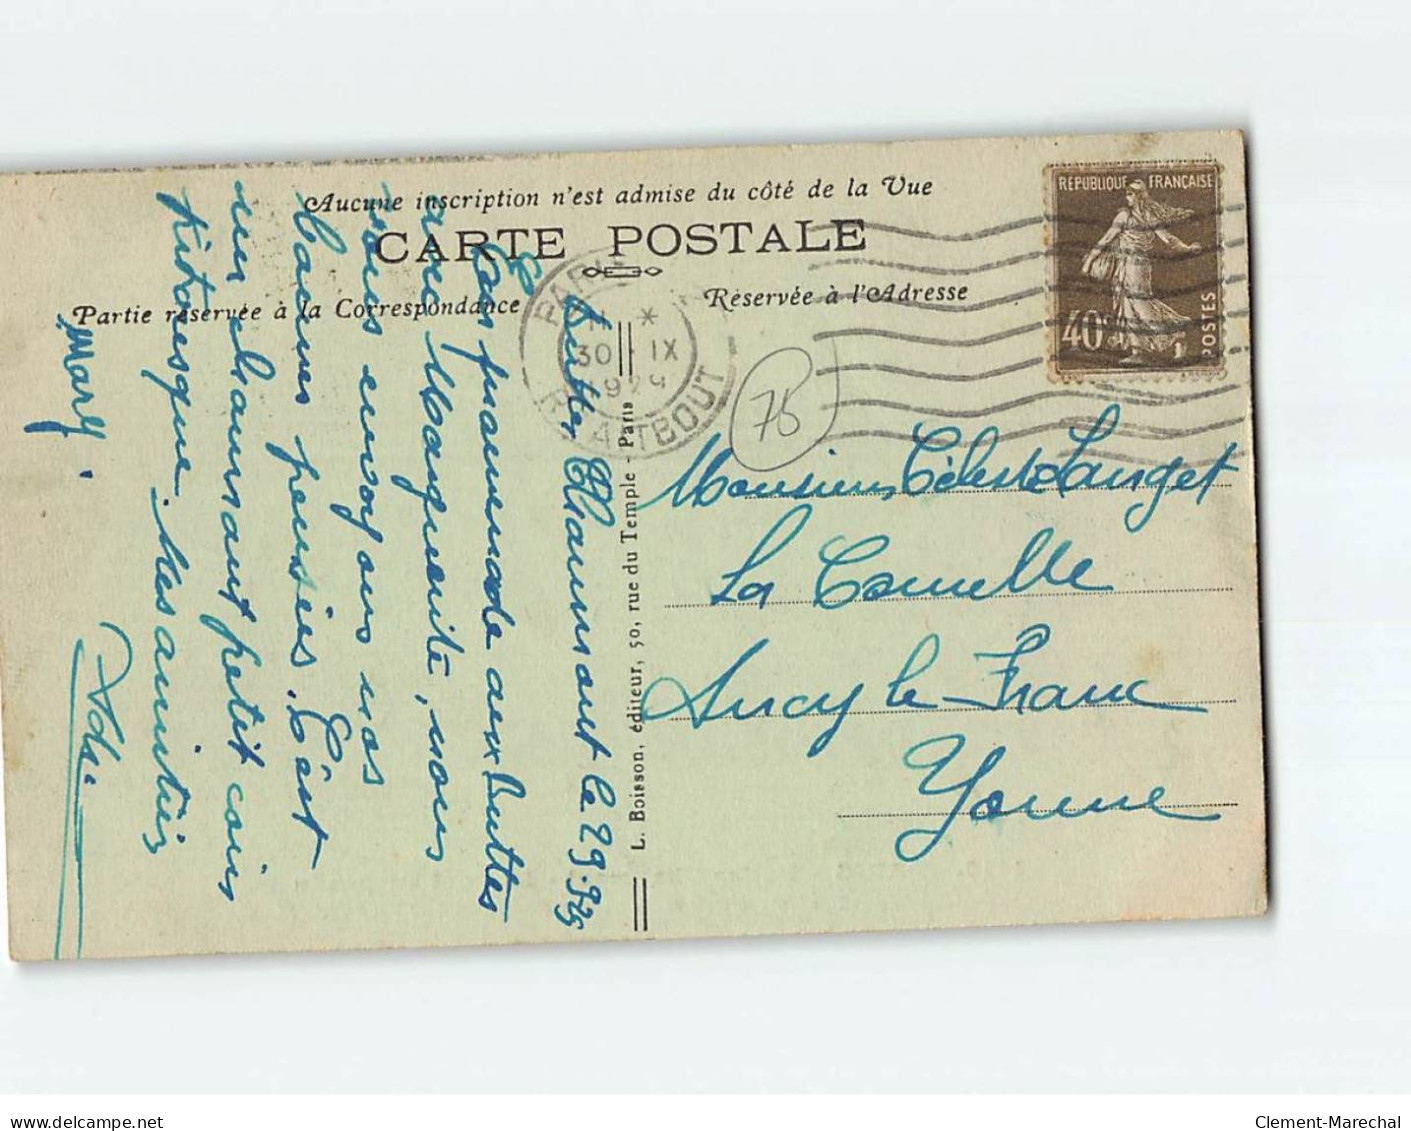 Aucune inscription n'est admise du côté de la Vue
CARTE POSTALE
Partie réservée à la Correspondance
Réservée à l'Adresse
REPUBLIQUE FRANÇAISE
40c
POSTES
PARIS
30 IX
1929
TAITBOUT
78
L. Boisson, éditeur, 50, rue du Temple - Paris
Monsieur Céleste Langet
La
Sucy le Franc
Yonne
Buttes Chaumont le 29.9.29
En promenade aux Buttes
avec Marguerite, nous
vous envoyons nos
bonnes pensées. C'est
un charmant petit coin
pittoresque. Mes amitiés
Mary.
Clement-Marechal